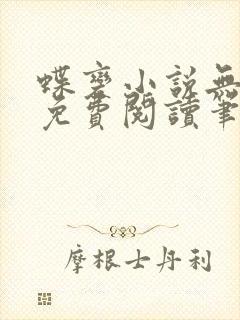 蝶变小说無
免費閱讀筆
摩根士丹利